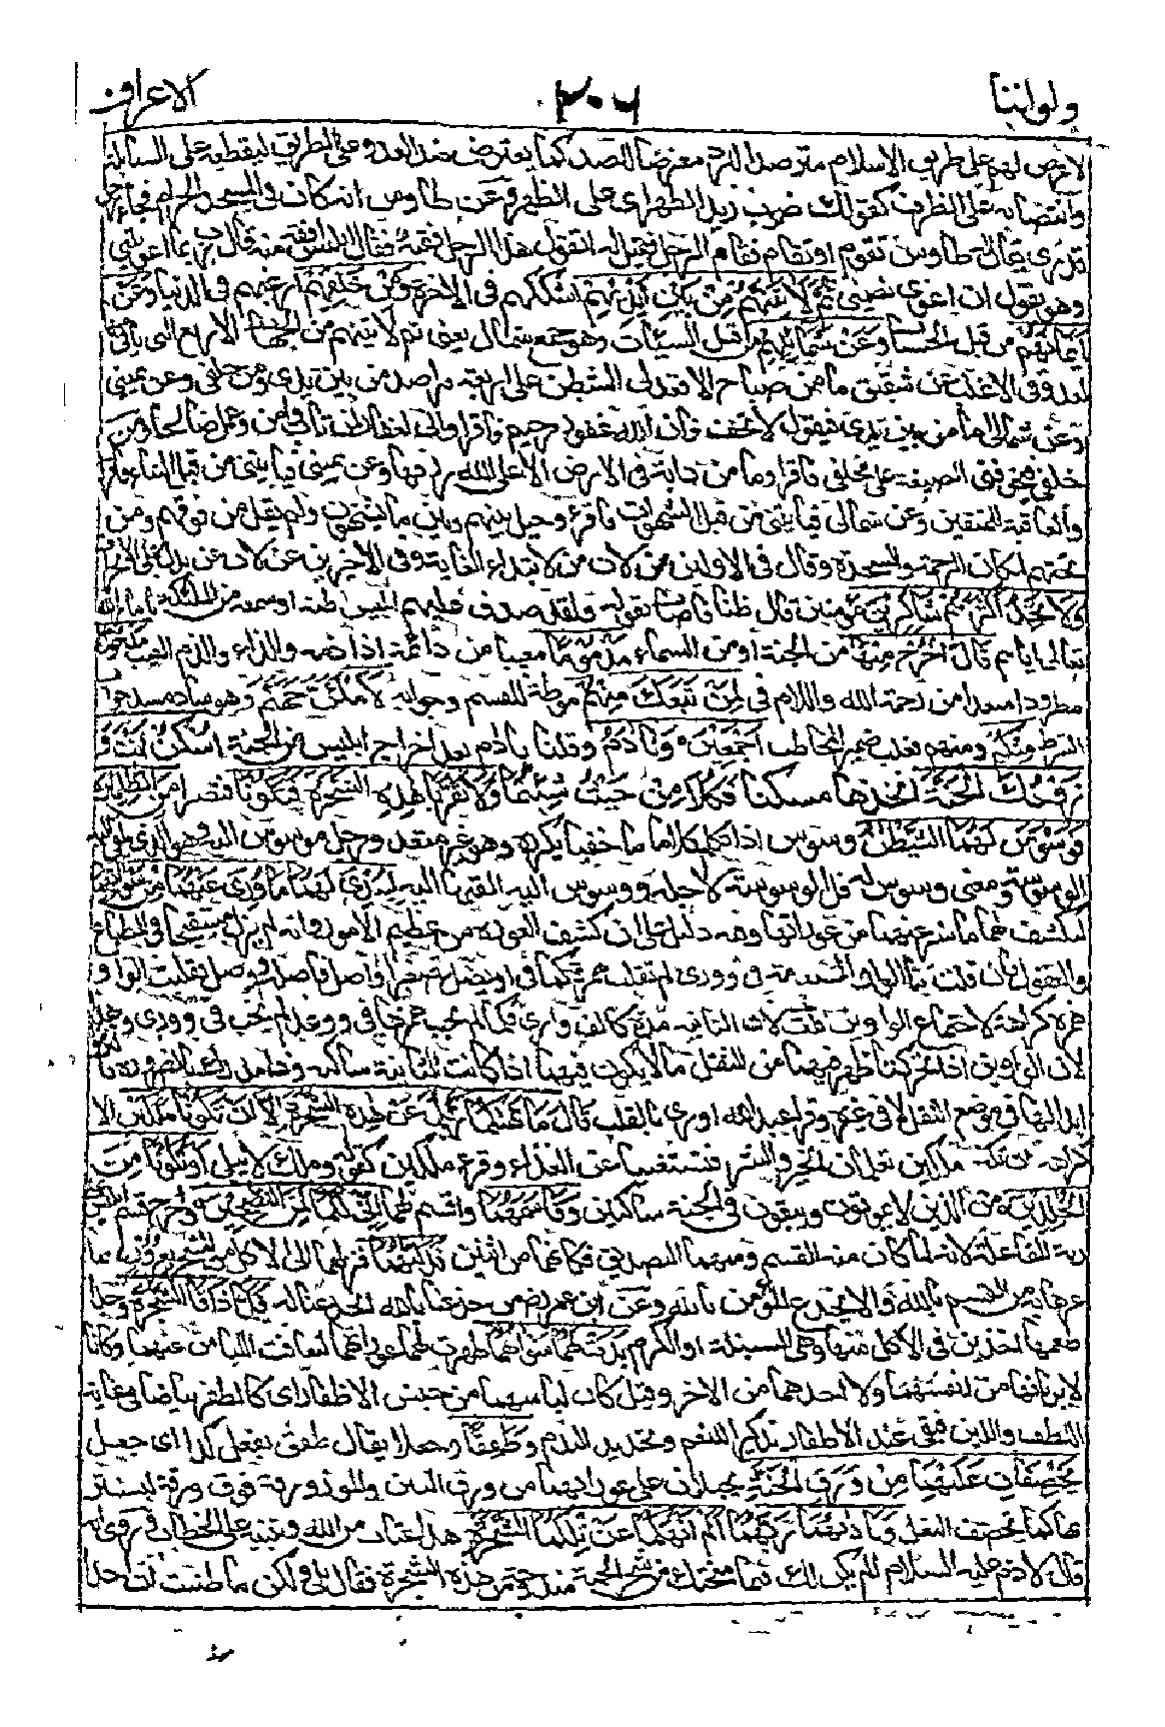 ولو اننا ٢٠٦ الاعراف
لاعترضن لهم على طريق الاسلام مترصدا للرد معترضا للصد كما يتعرض العدو على الطريق ليقطعه على السابلة
وانتصابه على الظرف كقولك ضرب زيد الظهر اى على الظهر وعن طاوس انه كان فى المسجد الحرام فجاء رجل
قدرى فقال طاوس تقوم او تقام فقام الرجل فقيل له اتقول هذا لرجل فقيه فقال ابليس افقه منه قال رب بما اغويتنى
وهو يقول انا اغوى نفسى ثُمَّ لَاٰتِيَنَّهُمْ مِنْ بَيْنِ اَيْدِيْهِمْ اشككهم فى الاخرة وَمِنْ خَلْفِهِمْ ارغبهم فى الدنيا وَعَنْ
اَيْمَانِهِمْ من قبل الحسنات وَعَنْ شَمَائِلِهِمْ من قبل السيئات وهو جمع شمال يعنى ثم لاتينهم من الجهات الاربع التى ياتى
العدو فى الاغلب عن شقيق ما من صباح الا قعد لى الشيطان على اربعة مراصد من بين يدى ومن خلفى وعن يمينى
وعن شمالى اما من بين يدى فيقول لا تخف فان الله غفور رحيم فاقرا وانى لغفار لمن تاب وامن وعمل صالحا ومن
خلفى فيخوفنى الضيعة على مخلفى فاقرا وما من دابة فى الارض الا على الله رزقها وعن يمينى فياتينى من قبل الثناء فاقرا
والعاقبة للمتقين وعن شمالى فياتينى من قبل الشهوات فاقرء وحيل بينهم وبين ما يشتهون ولم يقل من فوقهم ومن
تحتهم لمكان الرحمة والسجدة وقال فى الاولين من لان من لابتداء الغاية وفى الاخرين عن لان عن يدل على الانحراف
وَلَا تَجِدُ اَكْثَرَهُمْ شَاكِرِيْنَ مؤمنين قال ظنا فاصاب لقوله ولقد صدق عليهم ابليس ظنه او سمعه من الملئكة باخبار الله
تعالى اياهم قَالَ اخْرُجْ مِنْهَا من الجنة او من السماء مَذْءُوْمًا معيبا من ذأمه اذا ذمه والذأم والذم العيب مَدْحُوْرًا
مطرودا مبعدا من رحمة الله واللام فى لَمَنْ تَبِعَكَ مِنْهُمْ موطئة للقسم وجوابه لَاَمْلَئَنَّ جَهَنَّمَ وهو ساد مسد جواب
الشرط مِنْكُمْ ومنهم فغلب ضمير المخاطب اَجْمَعِيْنَ وَيَاٰدَمُ وقلنا يا ادم بعد اخراج ابليس من الجنة اسْكُنْ اَنْتَ وَ
زَوْجُكَ الْجَنَّةَ اتخذها مسكنا فَكُلَا مِنْ حَيْثُ شِئْتُمَا وَلَا تَقْرَبَا هٰذِهِ الشَّجَرَةَ فَتَكُوْنَا فتصيرا مِنَ الظَّالِمِيْنَ
فَوَسْوَسَ لَهُمَا الشَّيْطٰنُ وسوس اذا تكلم كلاما خفيا يكرره وهو غير متعد ورجل موسوس اليه وهو الذى يلقى اليه
الوسوسة ومعنى وسوس له فعل الوسوسة لاجله ووسوس اليه القيها اليه لِيُبْدِيَ لَهُمَا مَا وُرِيَ عَنْهُمَا مِنْ سَوْاٰتِهِمَا
ليكشف لهما ما ستر عنهما من عوراتهما وفيه دليل على ان كشف العورة من عظيم الامور وانه لم يزل مستقبحا فى الطباع
والعقول فان قلت ما للواو المضمومة فى وورى لم تقلب همزة كما فى اويصل تصغير واصل فاصله وويصل فقلبت الواو
همزة كراهة لاجتماع الواوين قلت لان الثانية مدة كالف وارى فكما لم يجب همزها فى واعد لم يجب فى وورى وهذا
لان الواوين اذا تحركتا ظهر فيهما من الثقل ما لا يكون فيهما اذا كانت الثانية ساكنة
ابدالها فى موضع الثقل لا فى غيره وقرأ عبد الله اورى بالقلب وَقَالَ مَا نَهَاكُمَا رَبُّكُمَا عَنْ هٰذِهِ الشَّجَرَةِ اِلَّا اَنْ تَكُوْنَا مَلَكَيْنِ الا
كراهة ان تكونا ملكين تعلمان الخير والشر وتستغنيان عن الغذاء وقرء ملكين كقوله وملك لا يبلى اَوْ تَكُوْنَا مِنَ
الْخٰلِدِيْنَ من الذين لا يموتون ويبقون فى الجنة ساكنين وَقَاسَمَهُمَا واقسم لهما اِنِّيْ لَكُمَا لَمِنَ النّٰصِحِيْنَ واخرج قسم ابليس على
زنة المفاعلة لانه لما كان منه القسم ومنهما التصديق فكانها من اثنين فَدَلّٰهُمَا فنزلهما الى الاكل من الشجرة بِغُرُوْرٍ بما
غرهما به من القسم بالله وانما يخدع المؤمن بالله وعن ابن عمر رضى من خدعنا بالله انخدعنا له فَلَمَّا ذَاقَا الشَّجَرَةَ وجدا
طعمها اخذين فى الاكل منها وهى السنبلة او الكرم بَدَتْ لَهُمَا سَوْاٰتُهُمَا ظهرت لهما عوراتهما لتهافت اللباس عنهما وكانا
لا يريانها من انفسهما ولا احدهما من الاخر وقيل كان لباسهما من جنس الاظفار اى كالظفر بياضا فى غاية
اللطف واللين فبقى عند الاظفار تذكيرا للنعم وتجديدا للندم وَطَفِقَا وجعلا يقال طفق يفعل كذا اى جعل
يَخْصِفَانِ عَلَيْهِمَا مِنْ وَرَقِ الْجَنَّةِ يجعلان على عورتهما من ورق التين والموز ورقة فوق ورقة ليستترا
بها كما تخصف النعل وَنَادٰهُمَا رَبُّهُمَا اَلَمْ اَنْهَكُمَا عَنْ تِلْكُمَا الشَّجَرَةِ هذا عتاب من الله وتنبيه على الخطاء وروى انه
قال لادم عليه السلام الم يكن لك فيما منحتك من شجر الجنة مندوحة عن هذه الشجرة فقال بلى ولكن ما ظننت ان احدا